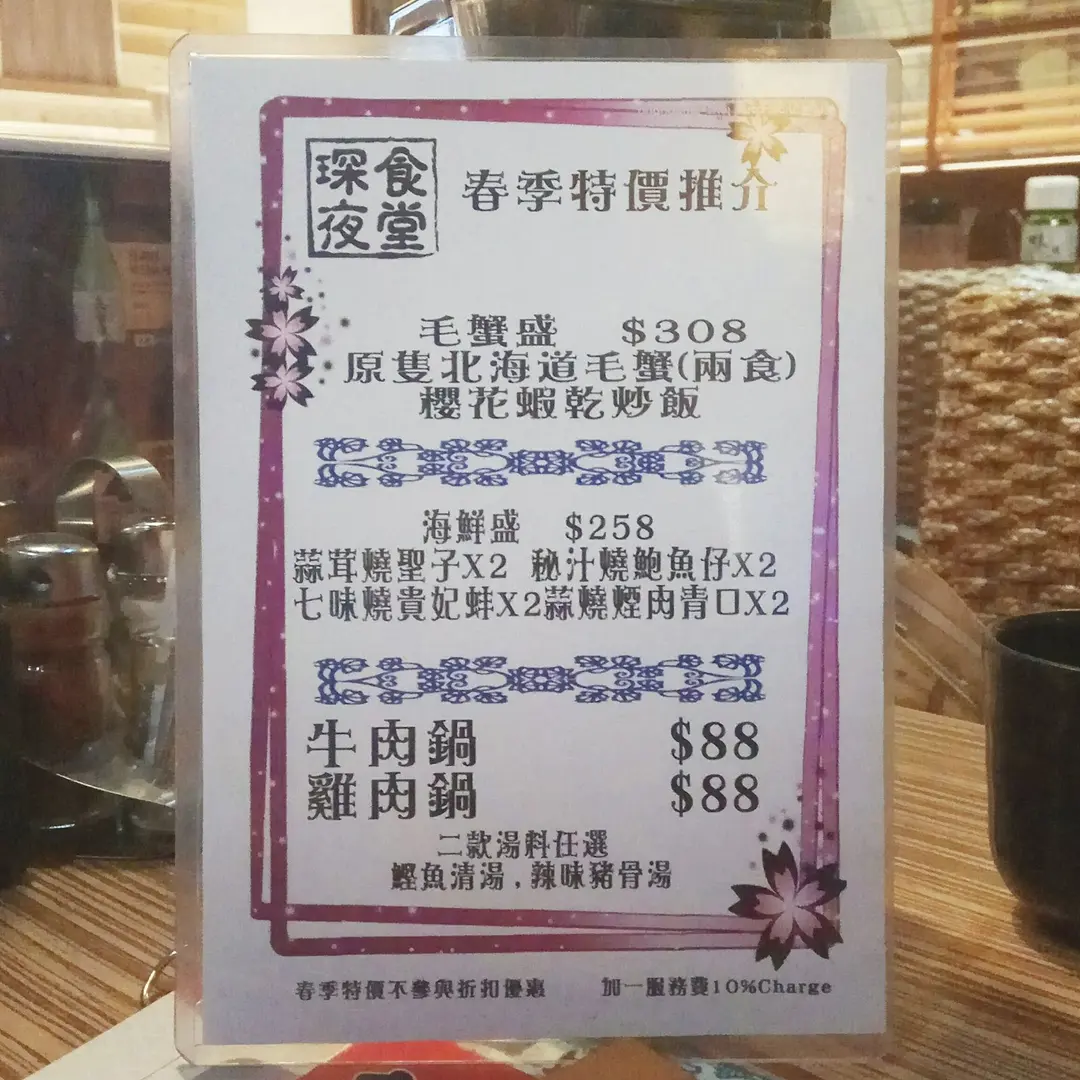 琛夜食堂
春季特價推介
毛蟹盛 $308
原隻北海道毛蟹(兩食)
櫻花蝦乾炒飯
海鮮盛 $258
蒜茸燒聖子X2 秘汁燒鮑魚仔X2
七味燒貴妃蚌X2蒜燒煙肉青口X2
牛肉鍋 $88
雞肉鍋 $88
二款湯料任選
鰹魚清湯,辣味豬骨湯
春季特價不參與折扣優惠 加一服務費10%Charge